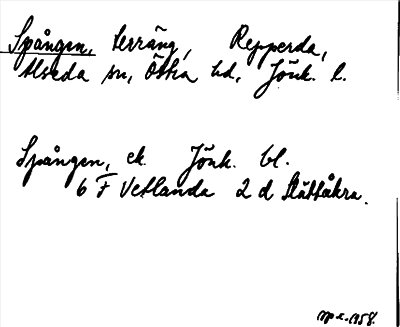 Spången, terräng, Repperda,
Alseda sn, Östra hd, Jönk. l.
Spången, ek. Jönk. bl.
6 F Vetlanda 2 d Slättåkra.
1958.